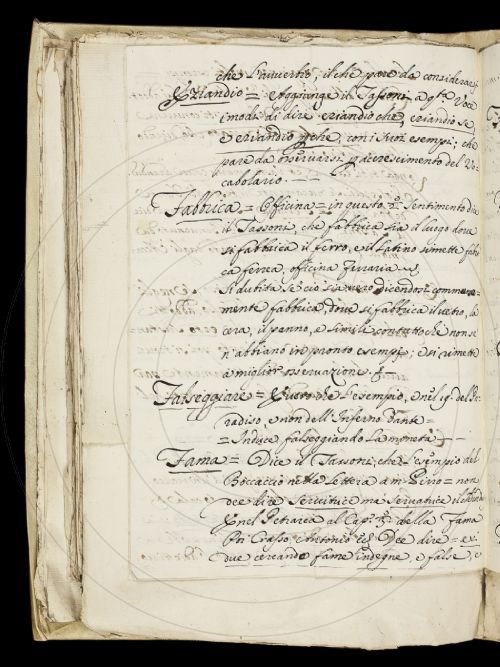 che l'avvertio, il che pare da considerarsi
Eziandio = Aggiunge il Tassoni a q.ta voce
i modi di dire eziandio che, eziandio se,
e eziandio perche, con i suoi esempi; che
pare da osservarsi p accrescimento del Vo-
cabolario
Fabbrica = Officina = in questo 3.o sentimento dice
il Tassoni, che fabbrica sia il luogo dove
si fabbrica il ferro, e il Latino si mette fabri
ca ferrea, officina ferraria
si dubita se ciò sia vero dicendosi commune-
mente fabbrica, dove si fabbrica il vetro, la
cera, il panno, e simili contuttoche non se
n'abbiano in pronto esempi; e si rimette
a miglior osservazione.
Falseggiare = vero che l'esempio, e nel 19. del Pa-
radiso, e non dell'Inferno Dante =
= Indice falseggiando la moneta
Fama = Dice il Tassoni, che l'esempio del
Boccaccio nella lettera a m. Pino = non
dee dire servitrice ma servatrice
nel Petrarca al Cap. 3.o della fama
Poi Crasso, e Antonio Dee dire =
due cercando fame indegne, e false, e